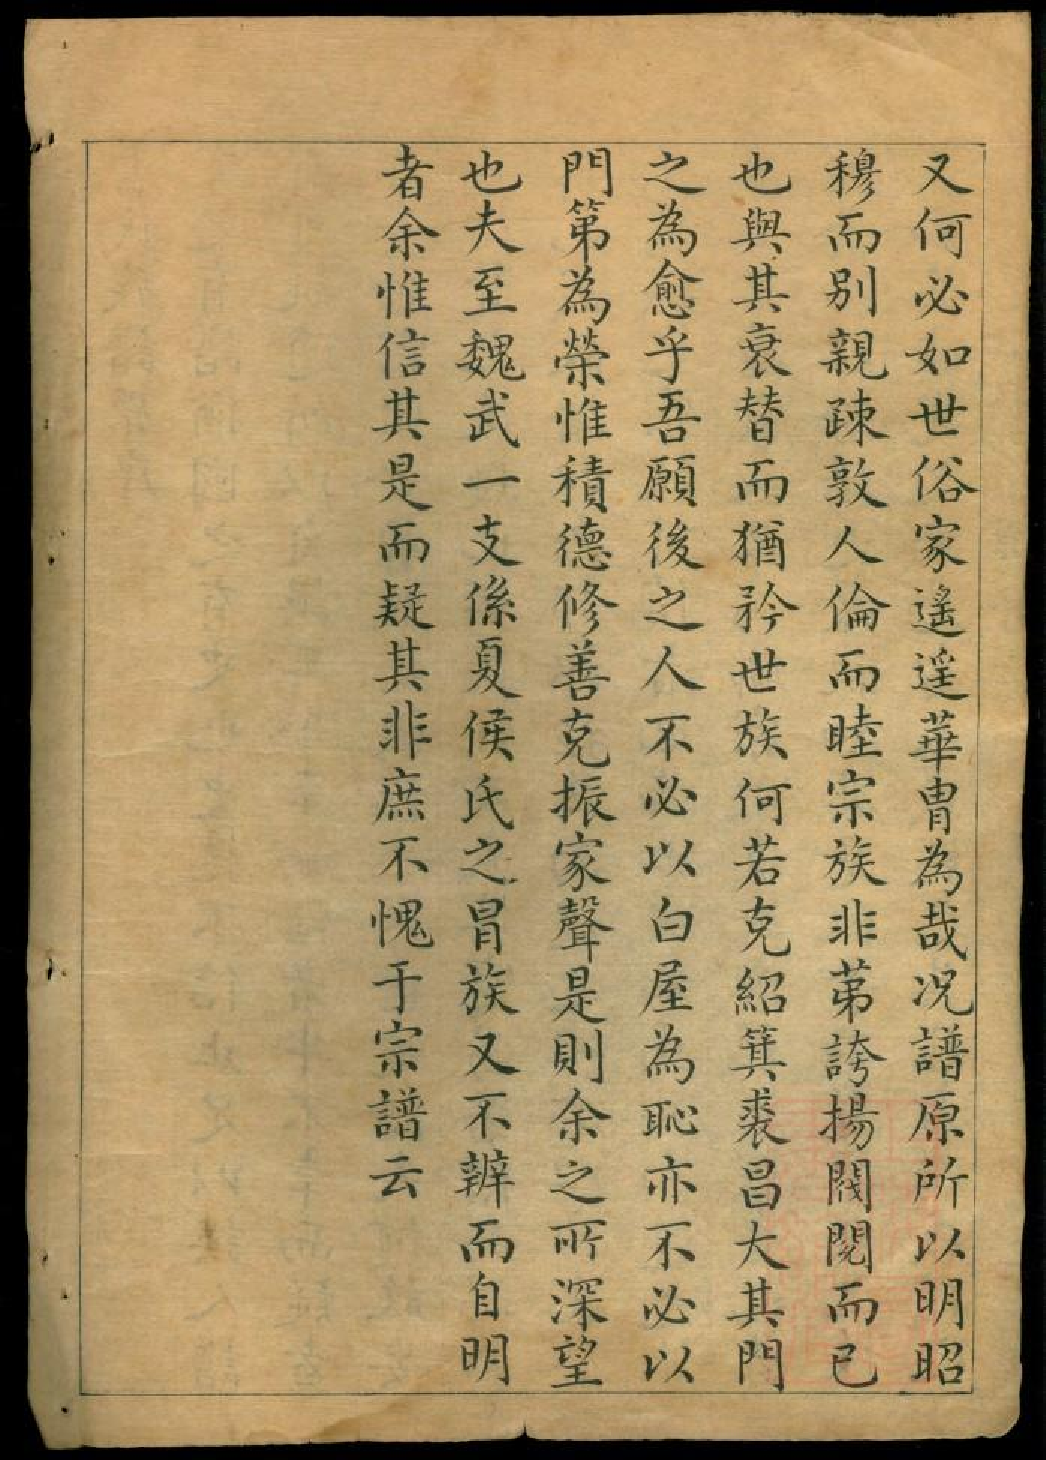 又何必如世俗家遙遥華胄為哉况譜原所以明昭
穆而别親疎敦人倫而睦宗族非苐誇揚閥閱而已
也與其衰替而猶矜世族何若克紹箕裘昌大其門
之為愈乎吾願後之人不必以白屋為恥亦不必以
門第為榮惟積德修善克振家聲是則余之所深望
也夫至魏武一支係夏侯氏之冒族又不辨而自明
者余惟信其是而疑其非庶不愧于宗譜云